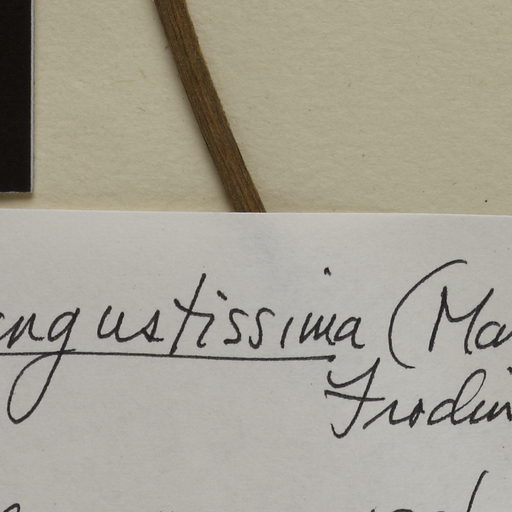 angustissima (Ma
Frodin